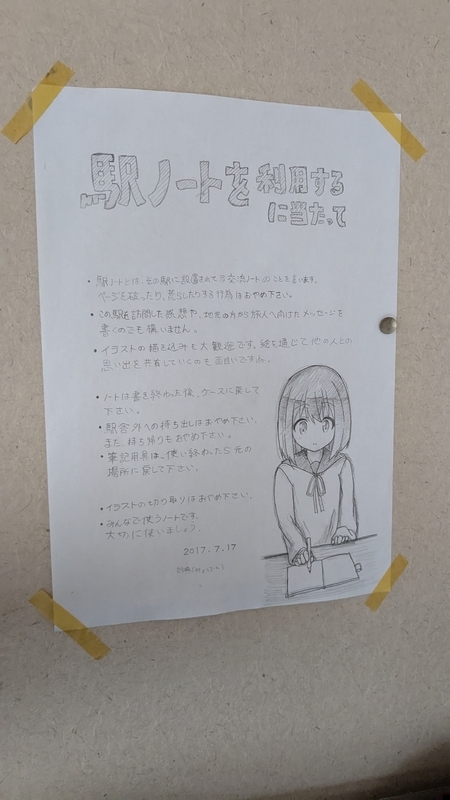 駅ノートを利用する
に当たって
・駅ノートとは、その駅に設置されている交流ノートのことを言います。
ページを破ったり、荒らしたりする行為はおやめ下さい。
・この駅を訪問した感想や、地元の方から旅人へ向けたメッセージを
書くのでも構いません。
・イラストの描き込みも大歓迎です。絵を通じて他の人との
思い出を共有していくのも面白いですよ。
・ノートは書き終わった後、ケースに戻して
下さい。
・駅舎外への持ち出しはおやめ下さい。
また、持ち帰りもおやめ下さい。
・筆記用具は、使い終わったら元の
場所に戻して下さい。
・イラストの切り取りはおやめ下さい。
・みんなで使うノートです。
大切に使いましょう。
2017.7.17